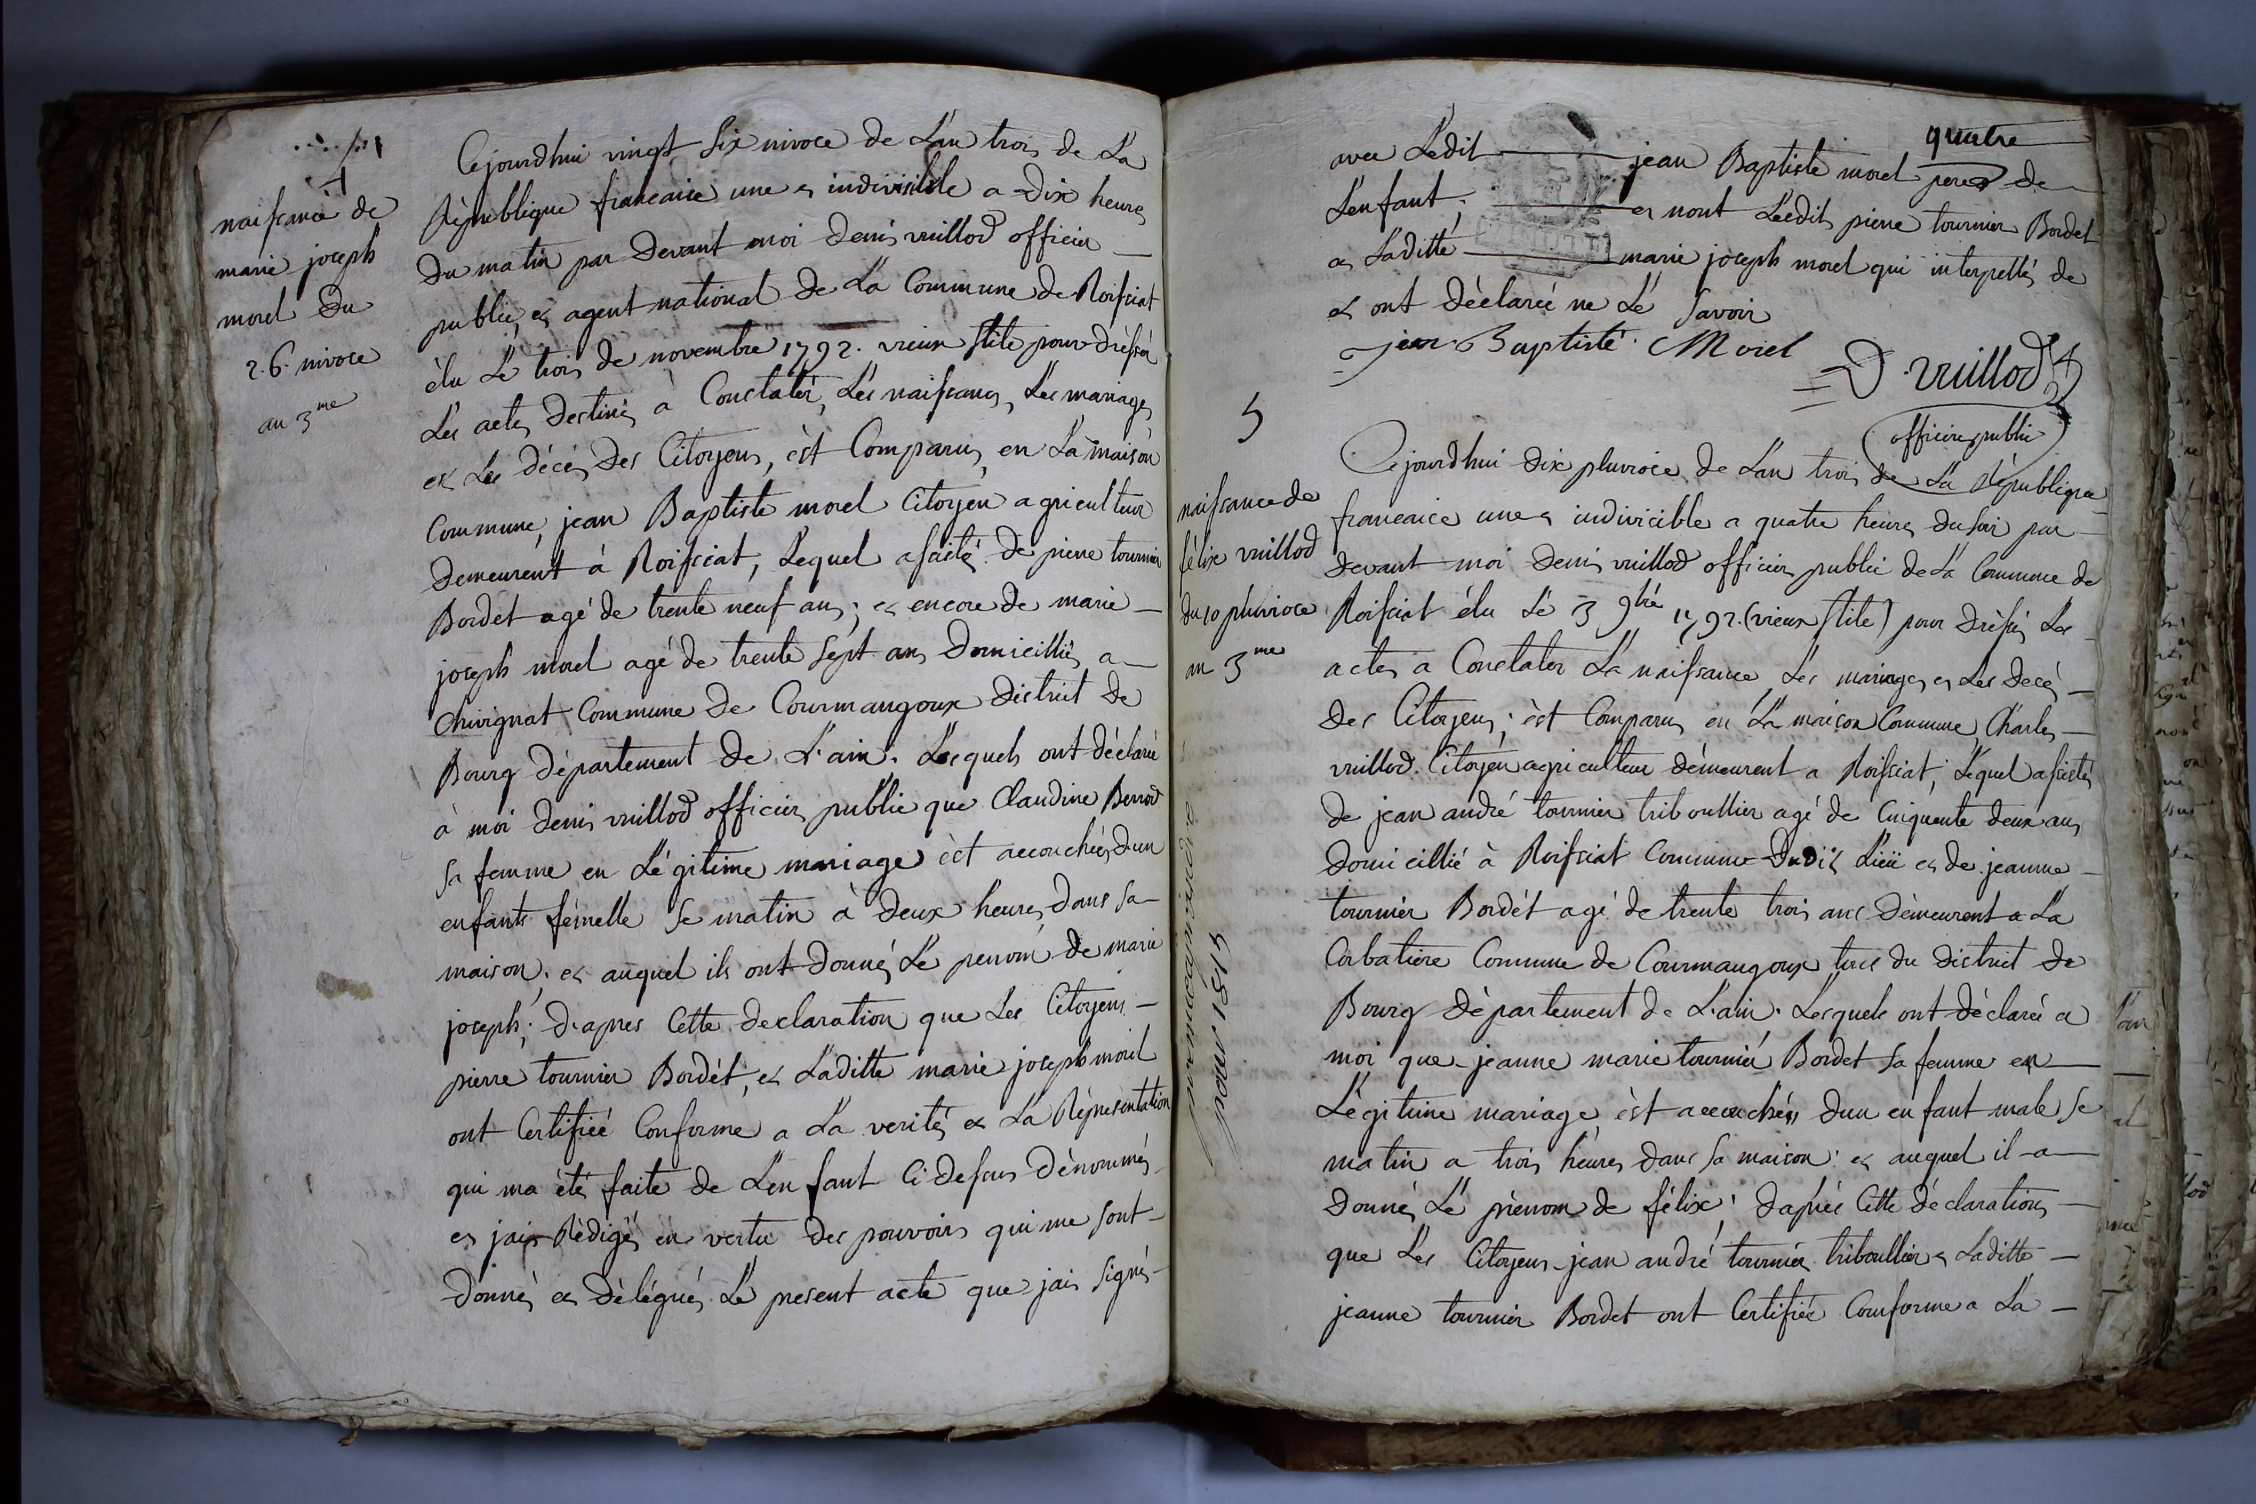 4
naissance de
marie joseph
morel du
2.6. nivose
an 3me
Cejourdhui vingt six nivoce de L'an trois de La
République francaice une et indivisible a dix heures
du matin par devant moi denis vuillod officier
public, et agent national de La Commune de Roissiat
élu Lé trois de novembre 1792. vieux stile pour drésser
Les actes destinés à Constatér, Lés naissances, Les mariages,
et Les décés des Citoyens, èst Comparus, en La maison
Commune, jean Baptiste morel Citoyén agriculteur
demeurént á Roissiat, Lequel assisté de pierre tournier
Bordet agé de trente neuf ans; et encore de marie
joseph morel agé de trente sépt ans domicilliés a
chivignat Commune de Courmangoux district de
Bourg département de L'ain. Lesquels ont déclarée
à moi denis vuillod officier public que Claudine Berrod
sa femme en Légitime mariage èst accouchée, dun
enfants fémelle se matin à deux heures, dans sa
maison, et auquel ils ont donnés Lé prenom de marie
joseph; d'apres Cette declaration que Les Citoyens
pierre tournier Bordét, et Laditte marie joseph morel
ont Certifiée Conforme a La verités et La Réprésentation
qui ma été faite de L'enfant Ci dessus dénommés
et jais Rédigé en vertu des pouvoirs qui me sont
donnés et délégués Lé present acte que jais signés
quatre
avec Lédit jean Baptiste morel pere de
Lenfant; et nont Lesdits pierre tournier Bordet
et Laditte marie joseph morel qui interpellés de
et ont déclarée ne Lé savoir
jean Baptisté Morel
D. vuillod
officier public
5
naissance de
félix vuillod
du 10 pluvioce
an 3me
pour 1815
Cejourdhui dix pluvioce de L'an trois de La République
francaice une et indivicible a quatre heures du soir par
devant moi denis vuillod officier public de La Commune de
Roissiat élu Lé 3 9bré 1792. (vieux stile) pour drésser Les
actes a Constater La naissance, Les mariages et Les decés
des Citoyens; èst Comparus en La maison Commune, Charles
vuillod Citoyén agriculteur démeurent a Roissiat, Lequel assistés
de jean andré tournier triboullier agé de Cinquente deux ans
domicillié à Roissiat Commune dudit Lieü et de jeanne
tournier Bordét agé de trente trois ans démeurent a La
Corbatiere Commune de Courmangoux tous du district de
Bourg département de L'ain. Lesquels ont déclarée a
moi que jeanne marie tournier Bordet sa femme en
Légitime mariage, èst accouchée, dun enfant male se
matin a trois héures dans sa maison; et auquel il a
donnés Lé prénom de félix; daprés Cette déclaration,
que Lés Citoyens jean andré tournier triboullier et Laditte
jeanne tournier Bordet ont Certifiée Comforme a La